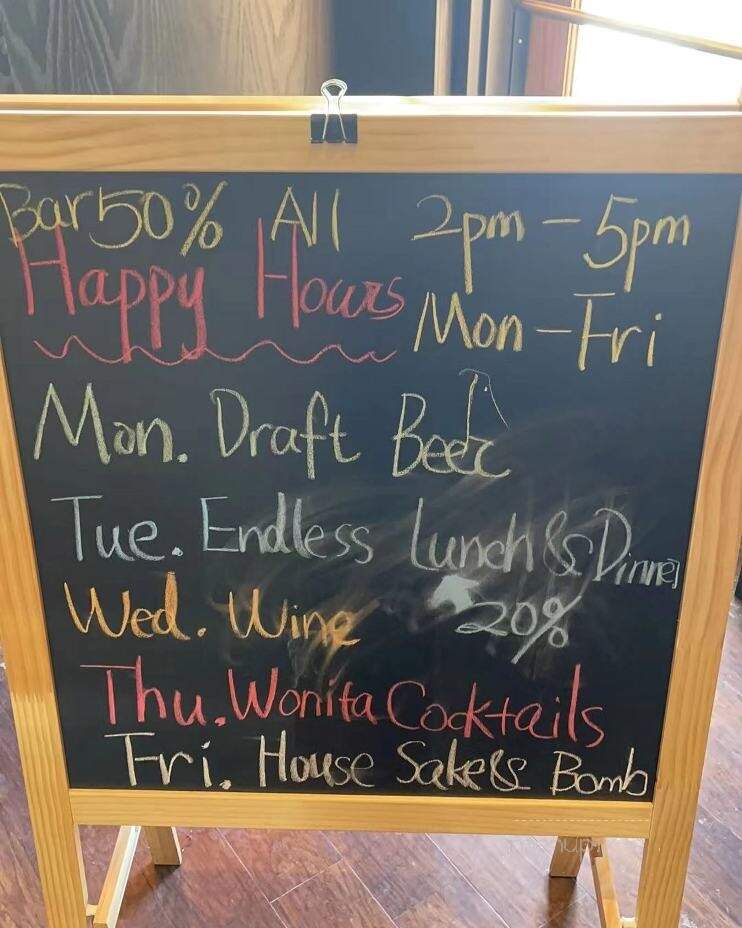 Bar 50% All 2pm - 5pm
Happy Hours Mon - Fri
Mon. Draft Beer
Tue. Endless Lunch & Dinner
20%
Wed. Wine
Thu. Wonita Cocktails
Fri. House Sake & Bomb